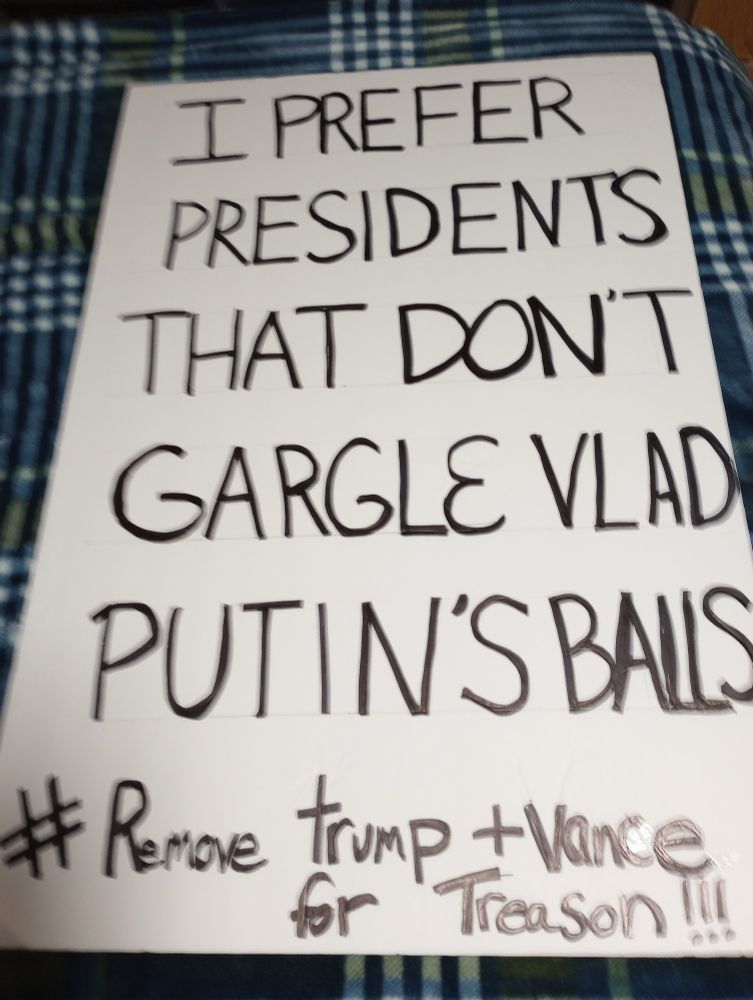 I PREFER
PRESIDENTS
THAT DON'T
GARGLE VLAD
PUTIN'S BALLS
# Remove trump + Vance
for Treason!!!